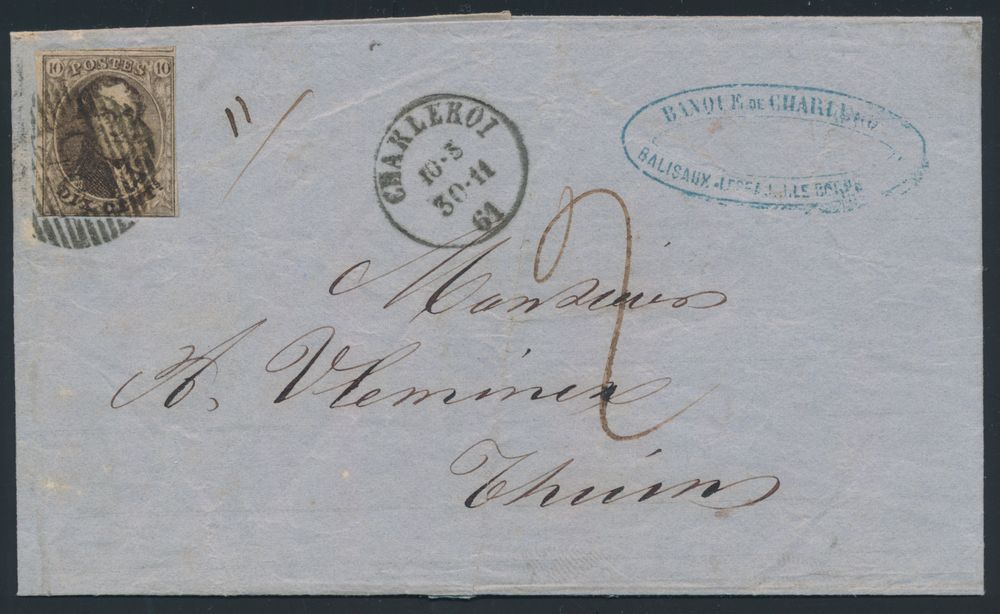 10 POSTES 10
DIX CENTS
11
CHARLEROI
10-S
30-11
61
BANQUE DE CHARLERO
BALISAUX
2
Monsieur
A. Vleminex
Thuin